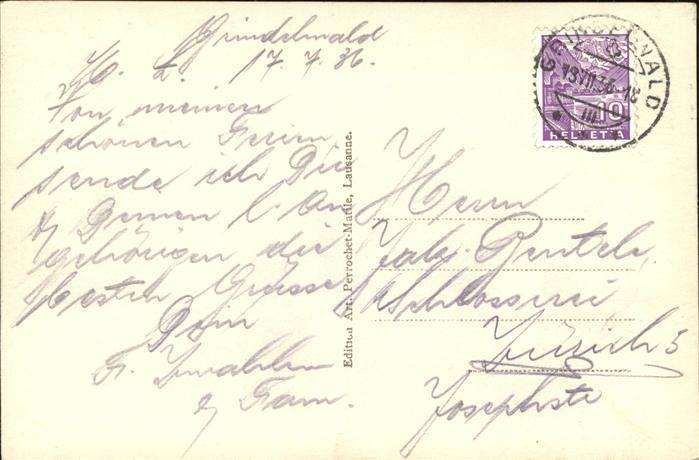 Grindelwald
17.7.36.
M. L.
Von meinen
schönen Ferien
sende ich Dir
& Deinen l. An
gehörigen die
besten Grüsse
Dein
F. Zwahlen
& Fam.
Edition Art. Perrochet-Matile, Lausanne.
GRINDELWALD
18.VII.36-18
10
HELVETIA
Herrn
Jak.
Schlosserei
Zürich 5
Josephstr